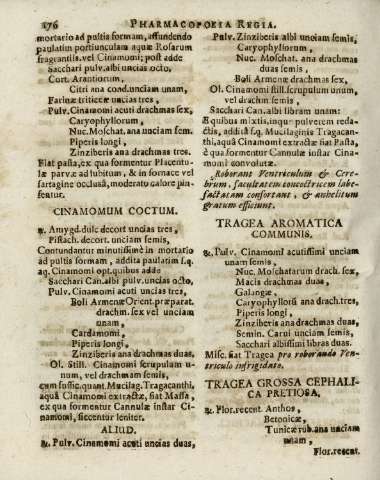 176 PHARMACOPOEIA REGIA.
mortario ad pultis formam, affundendo
paulatim portiunculam aquæ Rosarum
fragrantiss. vel Cinamomi; post adde
Sacchari pulv. albi uncias octo,
Cort. Arantiorum,
Citri ana cond. unciam unam,
Farinæ triticeæ uncias tres,
Pulv. Cinamomi acuti drachmas sex,
Caryophyllorum,
Nuc. Moschat. ana unciam sem.
Piperis longi,
Zinziberis ana drachmas tres.
Fiat pasta, ex qua formentur Placentu-
læ parvæ ad lubitum, & in fornace vel
sartagine occlusâ, moderato calore pin-
sentur.
CINAMOMUM COCTUM.
℞. Amygd. dulc decort uncias tres,
Pistach. decort. unciam semis,
Contundantur minutissimè in mortario
ad pultis formam, addita paulatim s.q.
aq. Cinamomi opt. quibus adde
Sacchari Can. albi pulv. uncias octo,
Pulv. Cinamomi acuti uncias tres,
Boli Armenæ Orient. præparat.
drachm. sex vel unciam
unam,
Cardamomi,
Piperis longi,
Zinziberis ana drachmas duas,
Ol. Still. Cinamomi scrupulum u-
num, vel drachmam semis,
cum suffic. quant. Mucilag. Tragacanthi,
aquâ Cinamomi extractæ, fiat Massa,
ex qua formentur Cannulæ instar Ci-
namomi, siccentur leniter.
ALIUD.
℞. Pulv. Cinamomi acuti uncias duas,
Pulv. Zinziberis albi unciam semis,
Caryophyllorum,
Nuc. Moschat. ana drachmas
duas semis,
Boli Armenæ drachmas sex,
Ol. Cinamomi still. scrupulum unum,
vel drachmam semis,
Sacchari Can. albi libram unam:
E quibus mixtis, inque pulverem reda-
ctis, addita s.q. Mucilaginis Tragacan-
thi, aquâ Cinamomi extractæ fiat Pasta,
è qua formentur Cannulæ instar Cina-
momi convolutæ.
Roborant Ventriculum & Cere-
brum, facultatem concoctricem labe-
factatam confortant, & anhelitum
gratum efficiunt.
TRAGEA AROMATICA
COMMUNIS.
℞. Pulv. Cinamomi acutissimi unciam
unam semis,
Nuc. Moschatarum drach. sex,
Macis drachmas duas,
Galangæ,
Caryophyllorū ana drach. tres,
Piperis longi,
Zinziberis ana drachmas duas,
Semin. Carui unciam semis,
Sacchari albissimi libras duas.
Misc. fiat Tragea pro roborando Ven-
triculo infrigidato.
TRAGEA GROSSA CEPHALI-
CA PRETIOSA.
℞. Flor. recent. Anthos,
Betonicæ,
Tunicæ rub. ana unciam
unam,
Flor. recent.